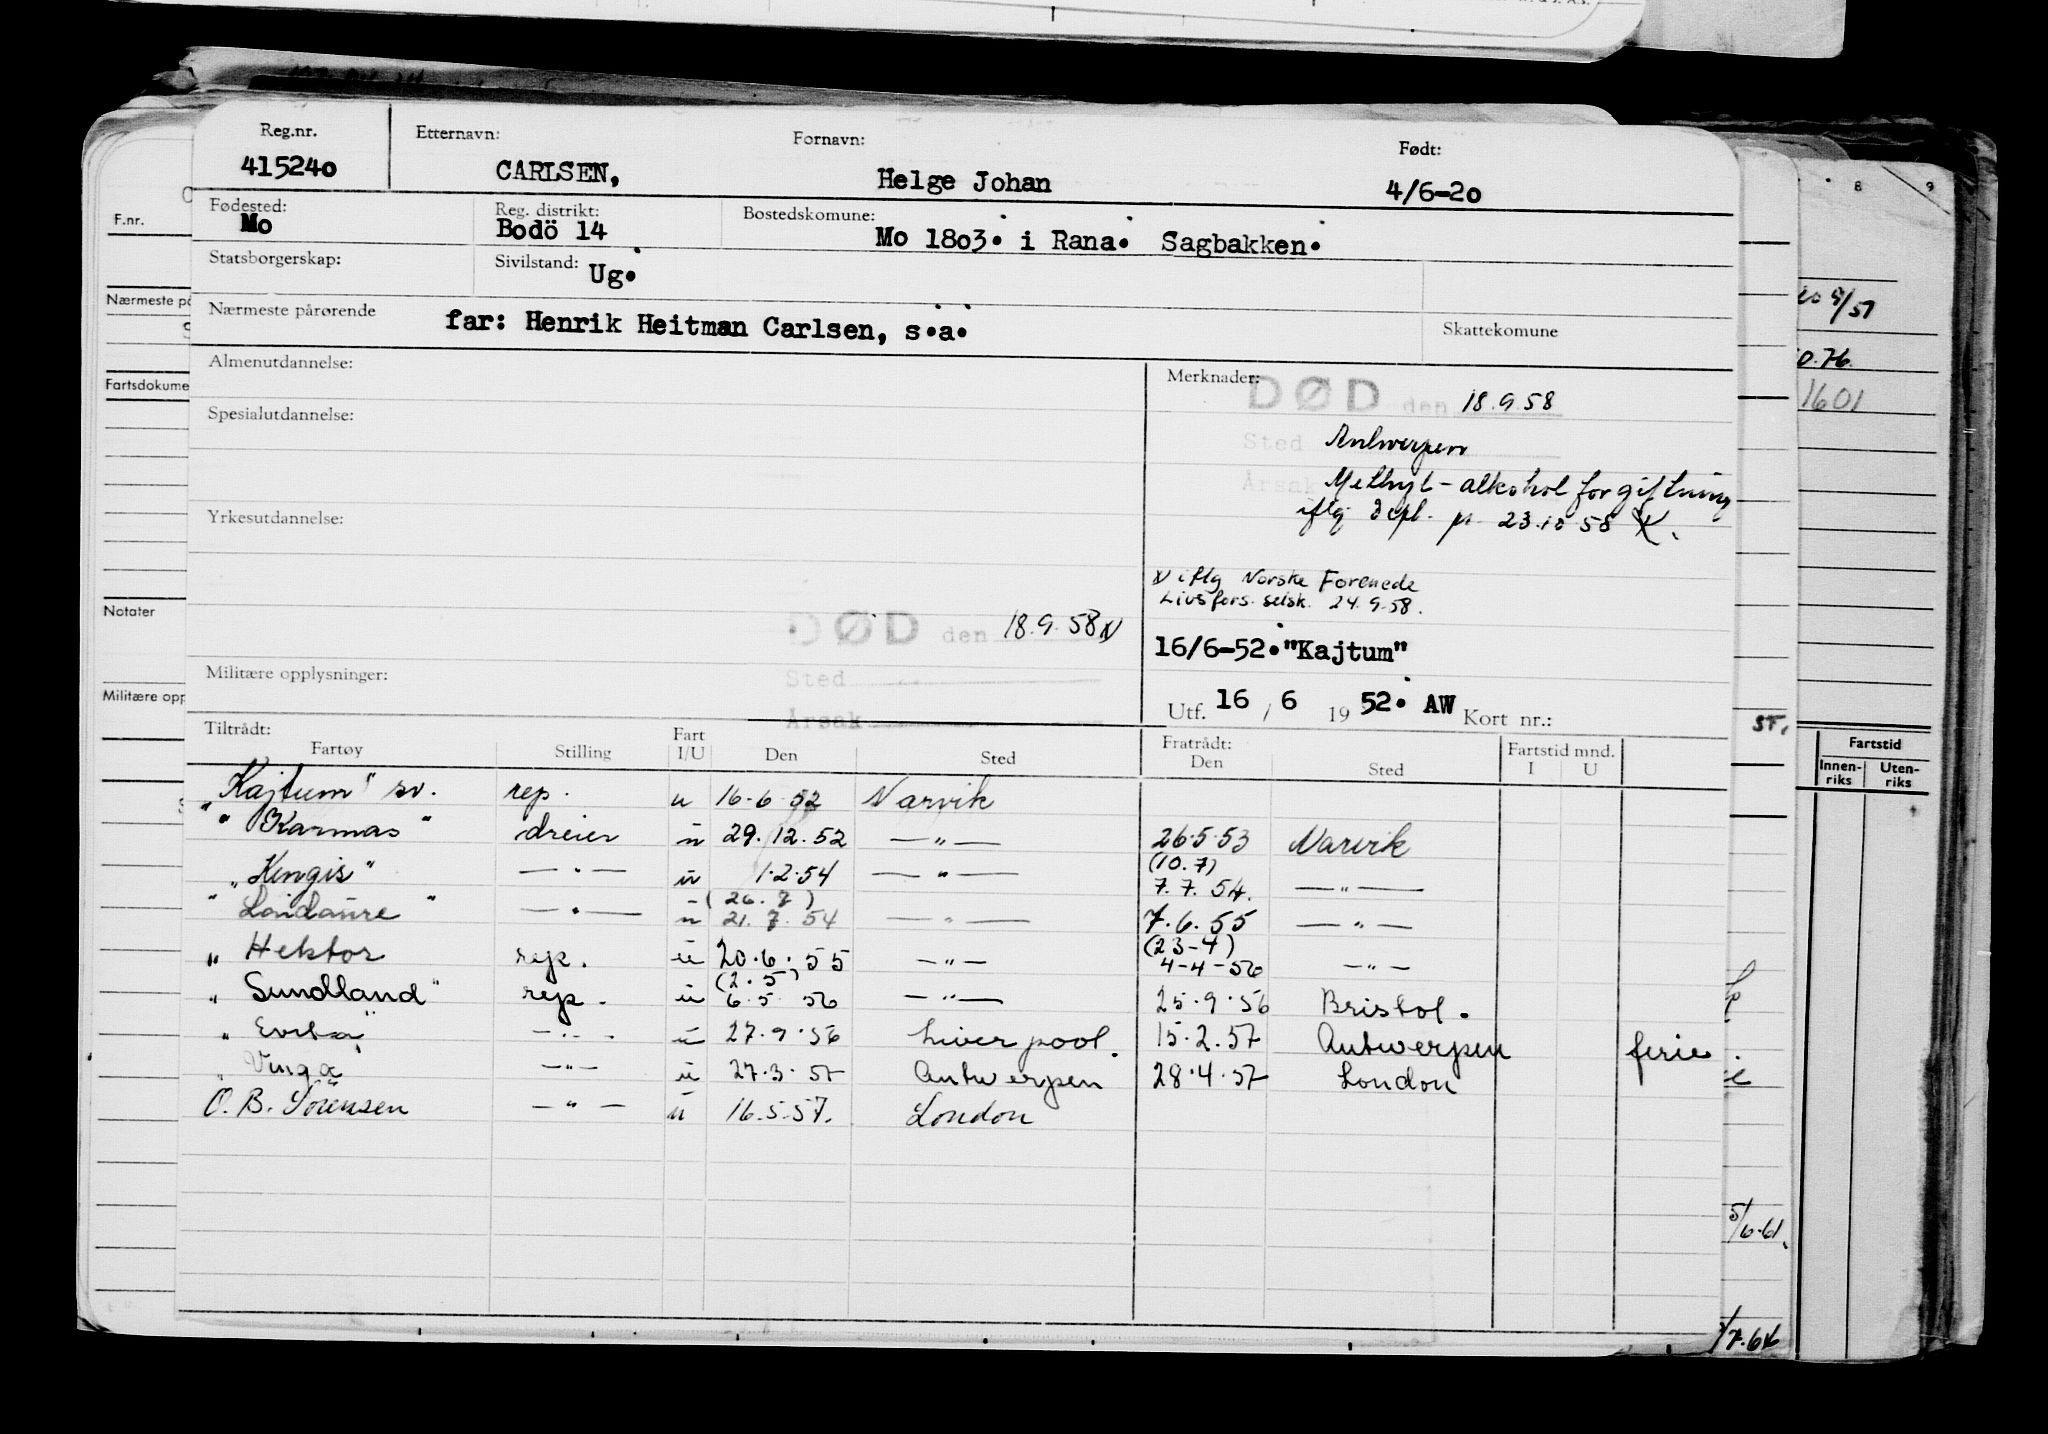 Reg.nr. Etternavn: Fornavn: Født:
415240 CARLSEN, Helge Johan 4/6-20
Fødested: Reg. distrikt: Bostedskomune:
Mo Bodö 14 Mo 1803. i Rana. Sagbakken.
Statsborgerskap: Sivilstand: Ug.
Nærmeste pårørende far: Henrik Heitman Carlsen, s.a. Skattekomune
Almenutdannelse: Merknader: DØD den 18.9.58
Spesialutdannelse: Sted Antwerpen
Årsak Methyl-alkohol forgiftning
iflg 23.10 58
Yrkesutdannelse:
iflg Norske Forenede
Livsfors. selsk. 24.9.58.
DØD den 18.9.58
16/6-52."Kajtum"
Militære opplysninger: Sted
Årsak
Utf. 16 / 6 19 52. AW Kort nr.:
Tiltrådt: Fratrådt: Fartstid mnd.
Fartøy Stilling Fart I/U Den Sted Den Sted I U
"Kajtum" sv. rep. u 16-6-52 Narvik
" Karmas " dreier u 29.12.52 — " — 26.5.53 Narvik
(10.7)
"Kengis" — " — u 1.2.54 — " — 7.7.54. — " —
(26.7)
" Laidaure " — " — u 21.7.54 — " — 7.6.55 — " —
(23-4)
" Hektor rep. u 20.6.55 — " — 4-4-56 — " —
(2.5)
" Sundland" rep. u 6.5.56 — " — 25.9.56 Bristol.
" Evita" — " — u 27.9.56 Liverpool. 15.2.57 Antwerpen ferie.
" Vinga" — " — u 27.3.57 Antwerpen 28.4.57 London
O. B. Sörensen — " — u 16.5.57. London
F.nr.
Nærmeste på
Fartsdokume
Notater
Militære opp
8 9
0.76.
1601
ST.
Fartstid
Innenriks Utenriks
5/6.61.
7.66